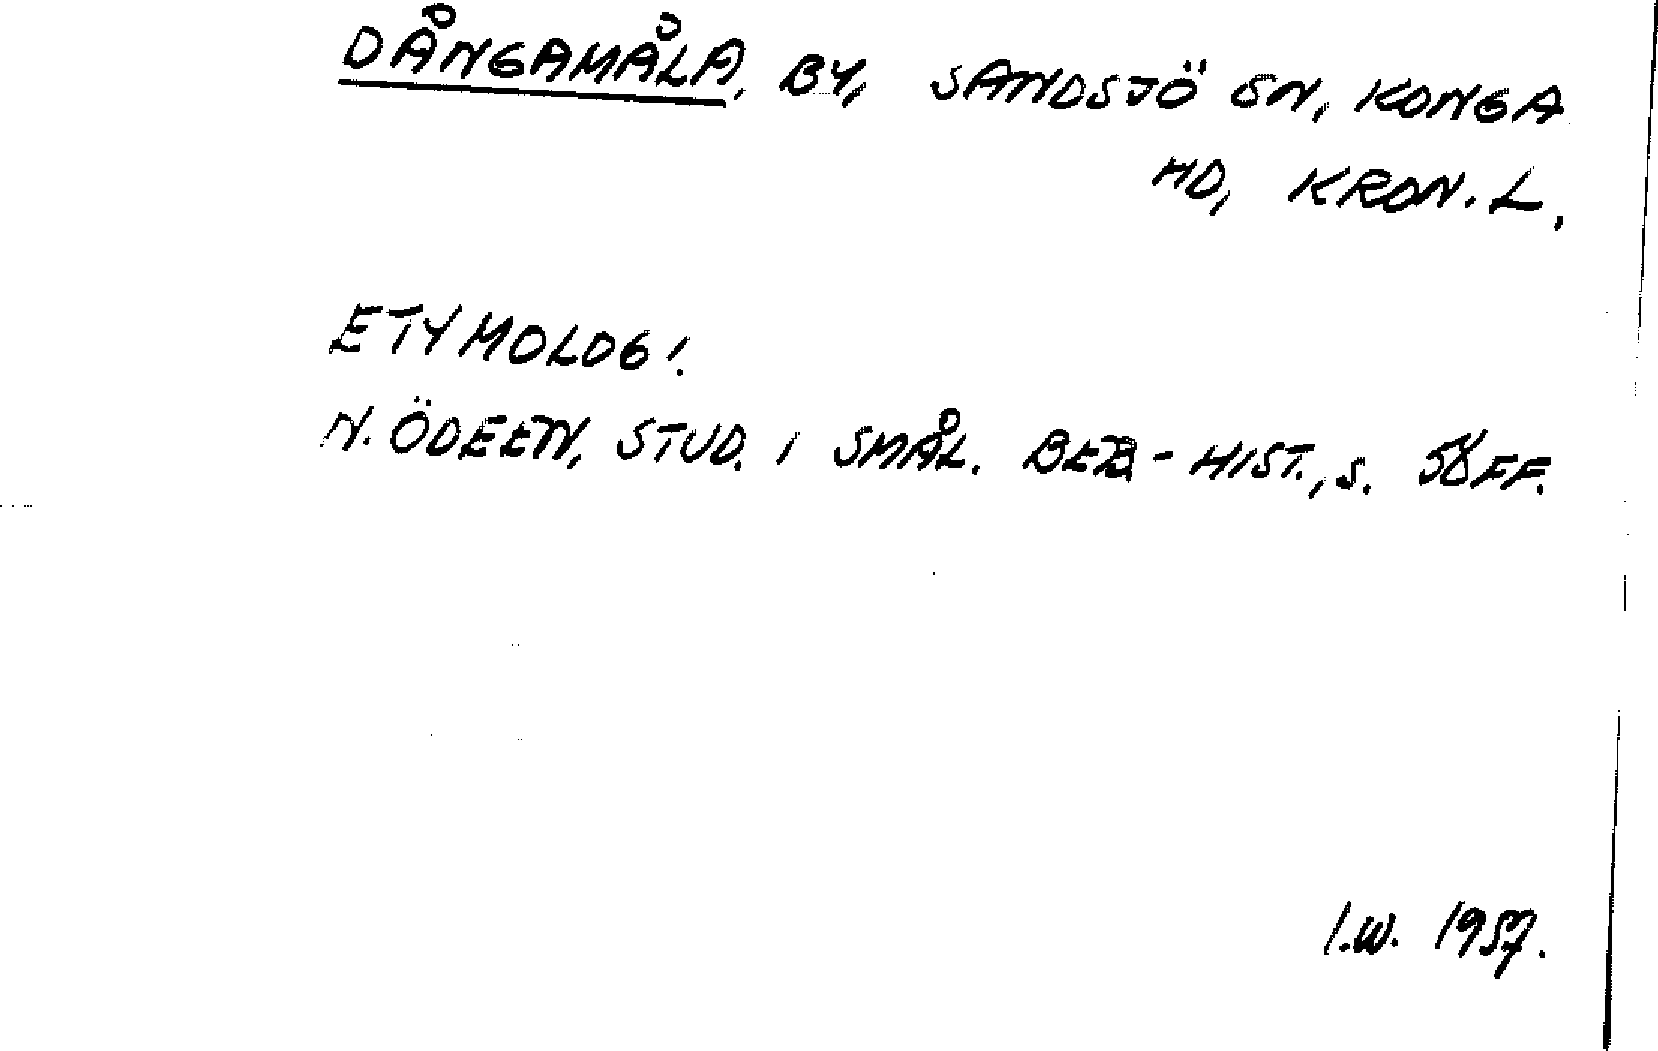 DÅNGAMÅLA, BY, SANDSJÖ SN, KONGA
HD, KRON. L.
ETYMOLOGI.
N. ÖDEEN, STUD. I SMÅL. BEB.-HIST., S. 58 FF.
I.W. 1957.